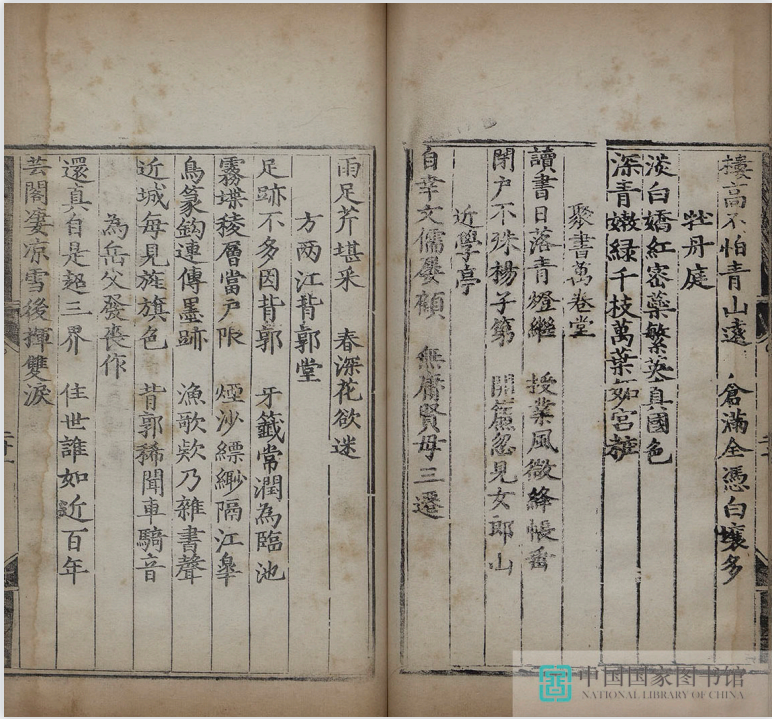 樓高不怕青山遠 倉滿全憑白壤多
牡丹庭
淡白嬌紅密藥繁英真國色
深青嫩綠千枝萬葉妬宮粧
聚書萬卷堂
讀書日落青燈繼 授業風微絳帳垂
閉戶不殊楊子第 開簾忽見女郎山
近學亭
自幸文儒屢顧 無庸賢母三遷
雨足芹堪采 春深花欲迷
方两江背郭堂
足跡不多因背郭 牙籤常潤為臨池
霧堞稜層當戶限 煙沙縹緲隔江臯
鳥篆鈎連傳墨跡 漁歌欵乃雜書聲
近城每見旌旗色 背郭稀聞車騎音
為岳父發喪作
還真自是超三界 住世誰如近百年
芸閣凄凉雪後揮雙淚
中国国家图书馆
NATIONAL LIBRARY OF CHINA